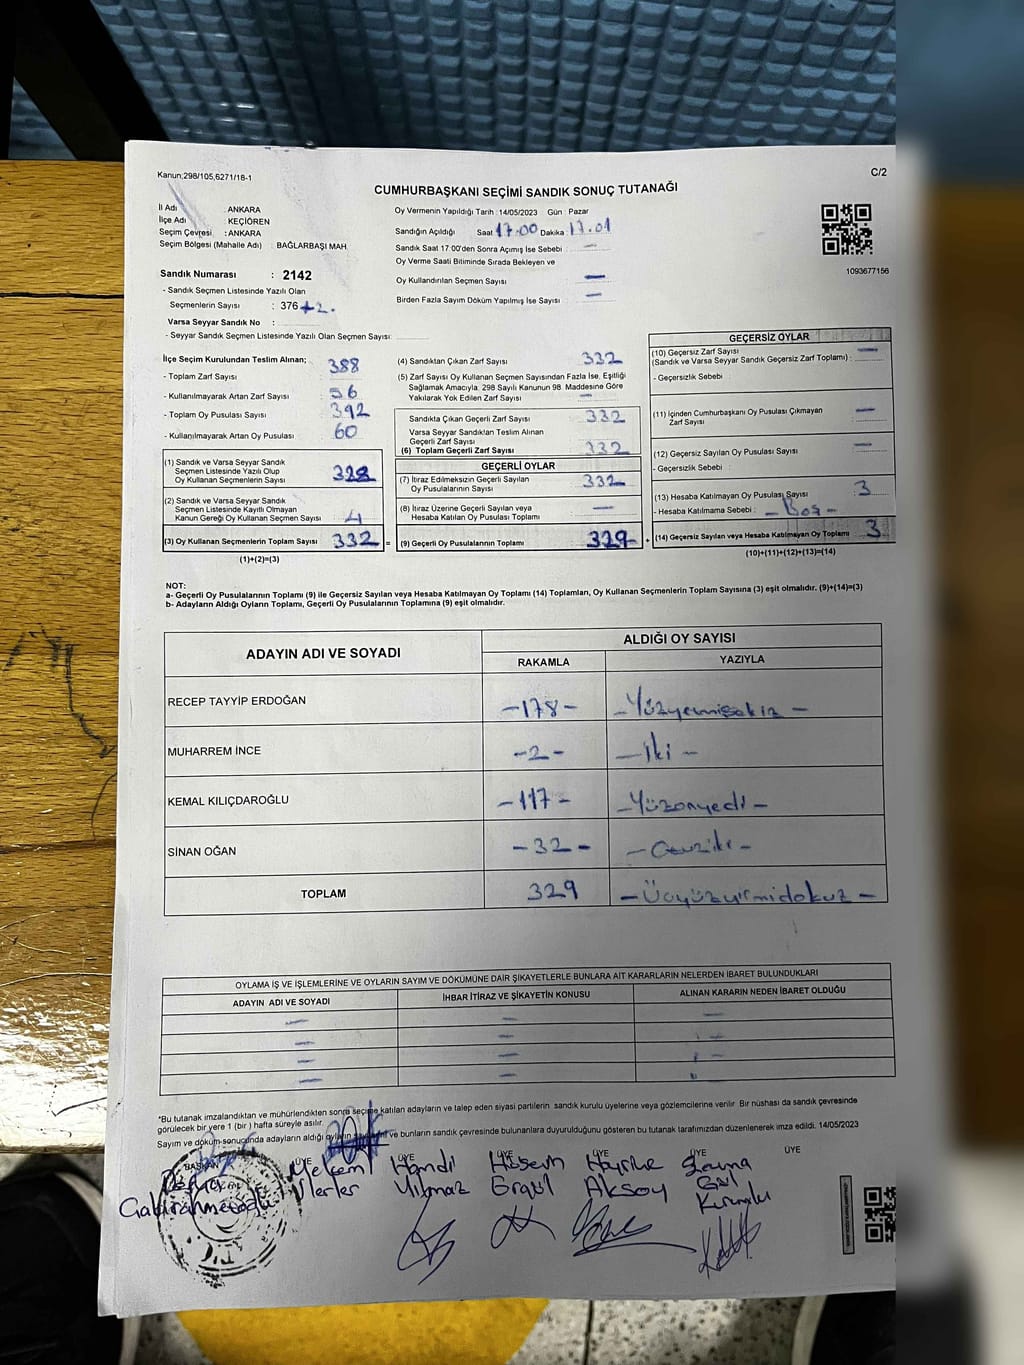 Kanun;298/105,6271/18-1
C/2
CUMHURBAŞKANI SEÇİMİ SANDIK SONUÇ TUTANAĞI
İl Adı : ANKARA
İlçe Adı : KEÇİÖREN
Seçim Çevresi : ANKARA
Seçim Bölgesi (Mahalle Adı) : BAĞLARBAŞI MAH.
Oy Vermenin Yapıldığı Tarih :14/05/2023 Gün Pazar
Sandığın Açıldığı Saat 17.00 Dakika : 17.01
Sandık Saat 17.00'den Sonra Açımış İse Sebebi : —
Oy Verme Saati Bitiminde Sırada Bekleyen ve
Oy Kullandırılan Seçmen Sayısı —
Birden Fazla Sayım Döküm Yapılmış İse Sayısı —
1093677156
Sandık Numarası : 2142
- Sandık Seçmen Listesinde Yazılı Olan
Seçmenlerin Sayısı : 376 +2.
Varsa Seyyar Sandık No :
- Seyyar Sandık Seçmen Listesinde Yazılı Olan Seçmen Sayısı:
İlçe Seçim Kurulundan Teslim Alınan;
- Toplam Zarf Sayısı 388
- Kullanılmayarak Artan Zarf Sayısı 56
- Toplam Oy Pusulası Sayısı 392
- Kullanılmayarak Artan Oy Pusulası 60
(1) Sandık ve Varsa Seyyar Sandık
Seçmen Listesinde Yazılı Olup
Oy Kullanan Seçmenlerin Sayısı 328
(2) Sandık ve Varsa Seyyar Sandık
Seçmen Listesinde Kayıtlı Olmayan
Kanun Gereği Oy Kullanan Seçmen Sayısı 4
(3) Oy Kullanan Seçmenlerin Toplam Sayısı 332 =
(1)+(2)=(3)
(4) Sandıktan Çıkan Zarf Sayısı 332
(5) Zarf Sayısı Oy Kullanan Seçmen Sayısından Fazla İse, Eşitliği
Sağlamak Amacıyla, 298 Sayılı Kanunun 98. Maddesine Göre
Yakılarak Yok Edilen Zarf Sayısı —
Sandıkta Çıkan Geçerli Zarf Sayısı 332
Varsa Seyyar Sandıktan Teslim Alınan
Geçerli Zarf Sayısı
(6) Toplam Geçerli Zarf Sayısı 332
GEÇERLİ OYLAR
(7) İtiraz Edilmeksizin Geçerli Sayılan
Oy Pusulalarının Sayısı 332
(8) İtiraz Üzerine Geçerli Sayılan veya
Hesaba Katılan Oy Pusulası Toplamı —
(9) Geçerli Oy Pusulalarının Toplamı 329 +
GEÇERSİZ OYLAR
(10) Geçersiz Zarf Sayısı
(Sandık ve Varsa Seyyar Sandık Geçersiz Zarf Toplamı) : —
- Geçersizlik Sebebi :
(11) İçinden Cumhurbaşkanı Oy Pusulası Çıkmayan
Zarf Sayısı —
(12) Geçersiz Sayılan Oy Pusulası Sayısı —
- Geçersizlik Sebebi :
(13) Hesaba Katılmayan Oy Pusulası Sayısı 3
- Hesaba Katılmama Sebebi : - Boş -
(14) Geçersiz Sayılan veya Hesaba Katılmayan Oy Toplamı 3
(10)+(11)+(12)+(13)=(14)
NOT:
a- Geçerli Oy Pusulalarının Toplamı (9) ile Geçersiz Sayılan veya Hesaba Katılmayan Oy Toplamı (14) Toplamları, Oy Kullanan Seçmenlerin Toplam Sayısına (3) eşit olmalıdır. (9)+(14)=(3)
b- Adayların Aldığı Oyların Toplamı, Geçerli Oy Pusulalarının Toplamına (9) eşit olmalıdır.
ADAYIN ADI VE SOYADI
ALDIĞI OY SAYISI
RAKAMLA YAZIYLA
RECEP TAYYİP ERDOĞAN -178- -Yüzyetmişsekiz-
MUHARREM İNCE -2- -İki-
KEMAL KILIÇDAROĞLU -117- -Yüzonyedi-
SİNAN OĞAN -32- -Otuziki-
TOPLAM 329 -Üçyüzyirmidokuz-
OYLAMA İŞ VE İŞLEMLERİNE VE OYLARIN SAYIM VE DÖKÜMÜNE DAİR ŞİKAYETLERLE BUNLARA AİT KARARLARIN NELERDEN İBARET BULUNDUKLARI
ADAYIN ADI VE SOYADI İHBAR İTİRAZ VE ŞİKAYETİN KONUSU ALINAN KARARIN NEDEN İBARET OLDUĞU
*Bu tutanak imzalandıktan ve mühürlendikten sonra seçime katılan adayların ve talep eden siyasi partilerin sandık kurulu üyelerine veya gözlemcilerine verilir. Bir nüshası da sandık çevresinde
görülecek bir yere 1 (bir) hafta süreyle asılır.
Sayım ve döküm sonucunda adayların aldığı oyların ve bunların sandık çevresinde bulunanlara duyurulduğunu gösteren bu tutanak tarafımızdan düzenlenerek imza edildi. 14/05/2023
BAŞKAN ÜYE ÜYE ÜYE ÜYE ÜYE ÜYE
Hamdi Hüseyin Hayriye Zeyna
İlerler Yılmaz Aksoy Gül